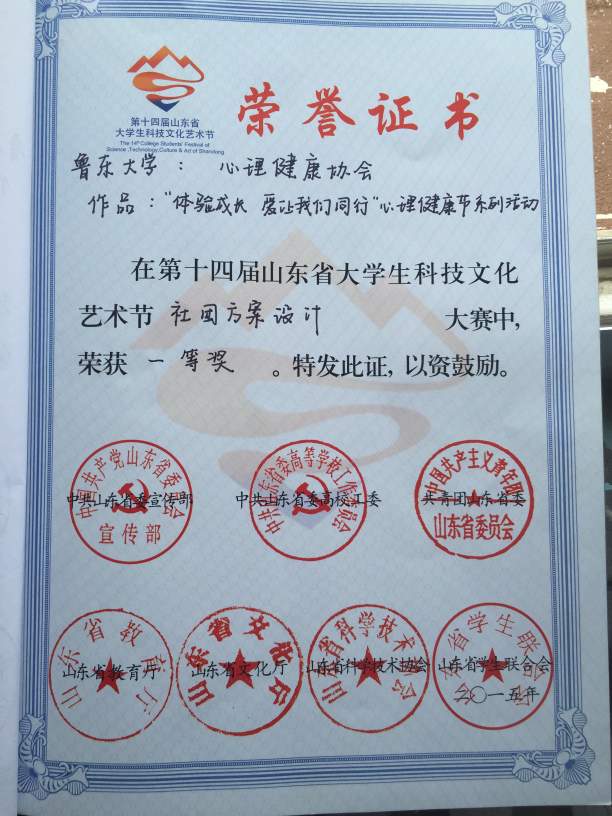 第十四届山东省
大学生科技文化艺术节
The 14th College Students' Festival of
Science ,Technology,Culture & Art of Shandong
荣誉证书
鲁东大学：心理健康协会
作品："体验成长 爱让我们同行"心理健康节系列活动
在第十四届山东省大学生科技文化
艺术节 社团方案设计 大赛中,
荣获 一等奖 。特发此证,以资鼓励。
中国共产党山东省委员会
宣传部
中共山东省委宣传部
中共山东省委高等学校工作委员会
中共山东省委高校工委
中国共产主义青年团
山东省委员会
共青团山东省委
山东省教育厅
山东省教育厅
山东省文化厅
山东省文化厅
山东省科学技术协会
山东省科学技术协会
山东省学生联合会
山东省学生联合会
二〇一五年